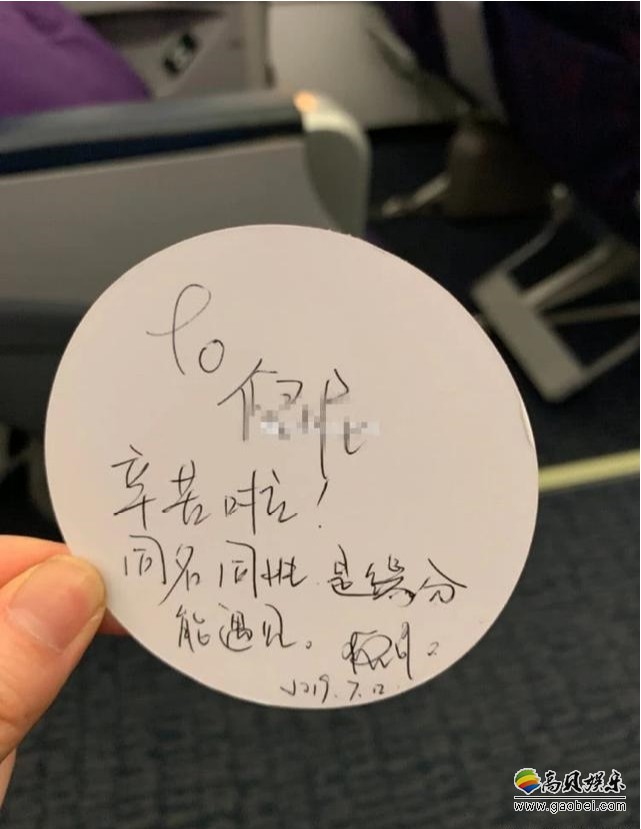 To
辛苦啦!
同名同姓 是缘分
能遇见。
2019.7.12.
高贝娱乐
www.gaobei.com